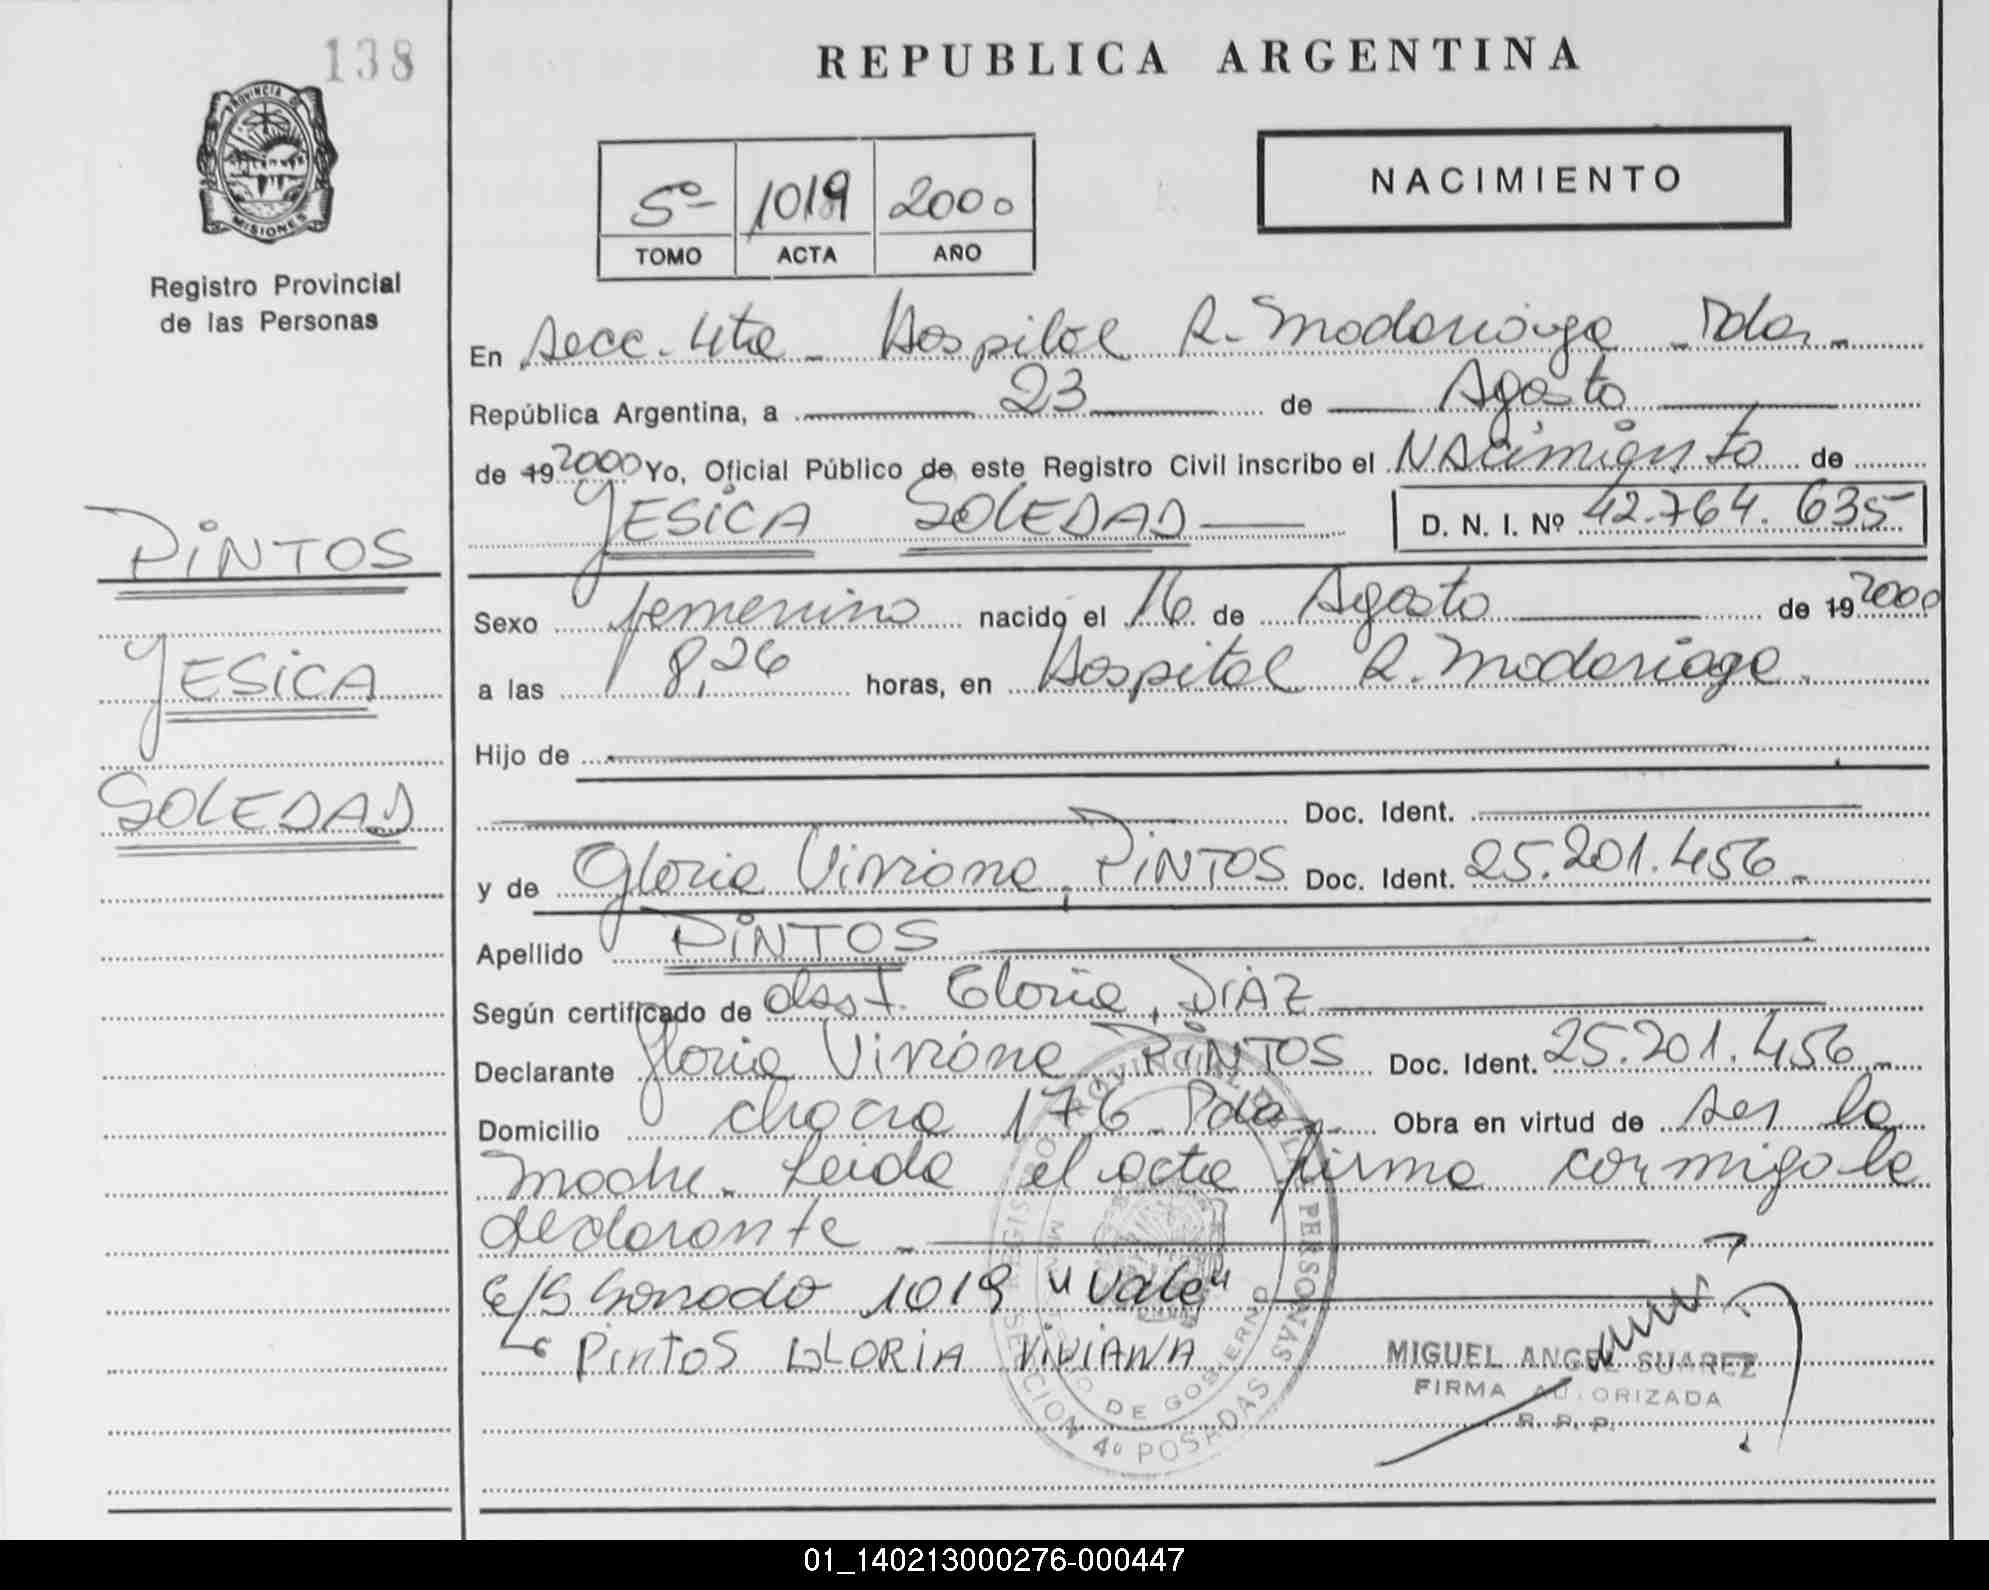 138
REPUBLICA ARGENTINA
PROVINCIA DE
MISIONES
Registro Provincial
de las Personas
5º 1019 2000
TOMO ACTA AÑO
NACIMIENTO
En Secc. 4ta - Hospital R. Madariaga - Pdas -
República Argentina, a 23 de Agosto
de 19 2000 Yo, Oficial Público de este Registro Civil inscribo el NAcimiento de
YESICA SOLEDAD D. N. I. Nº 42.764.635
PINTOS
YESICA
SOLEDAD
Sexo femenino nacido el 16 de Agosto de 19 2000
a las 8,26 horas, en Hospital R. Madariaga.
Hijo de
Doc. Ident.
y de Gloria Viviana, PINTOS Doc. Ident. 25.201.456 -
Apellido PINTOS
Según certificado de obst. Gloria, DIAZ
Declarante Gloria Viviana PINTOS Doc. Ident. 25.201.456 -
Domicilio chacra 176 - Pdas - Obra en virtud de ser la
madre - Leida el acta firma conmigo la
declarante -
E/S borrado 1019 "Vale"
PintoS GLORIA ViViANA
MIGUEL ANGEL SUAREZ
FIRMA AUTORIZADA
R. P. P.
REGISTRO PROVINCIAL DE LAS PERSONAS
MINISTERIO DE GOBIERNO
SECCION 4º POSADAS
01_140213000276-000447